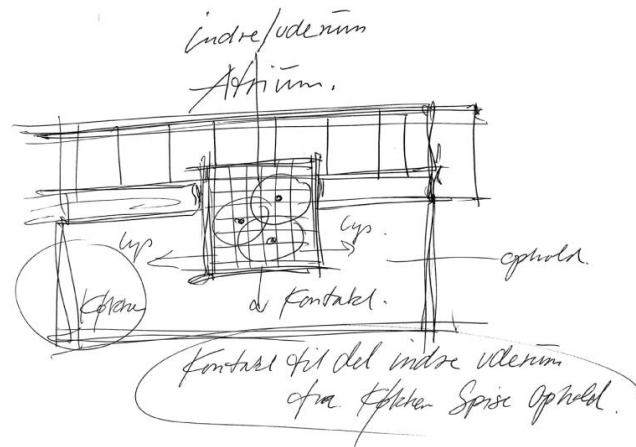 indre/uderum
Atrium.
Lys
Lys.
ophold.
Køkken
Kontakt.
Kontakt til det indre uderum
fra Køkken Spise Ophold.